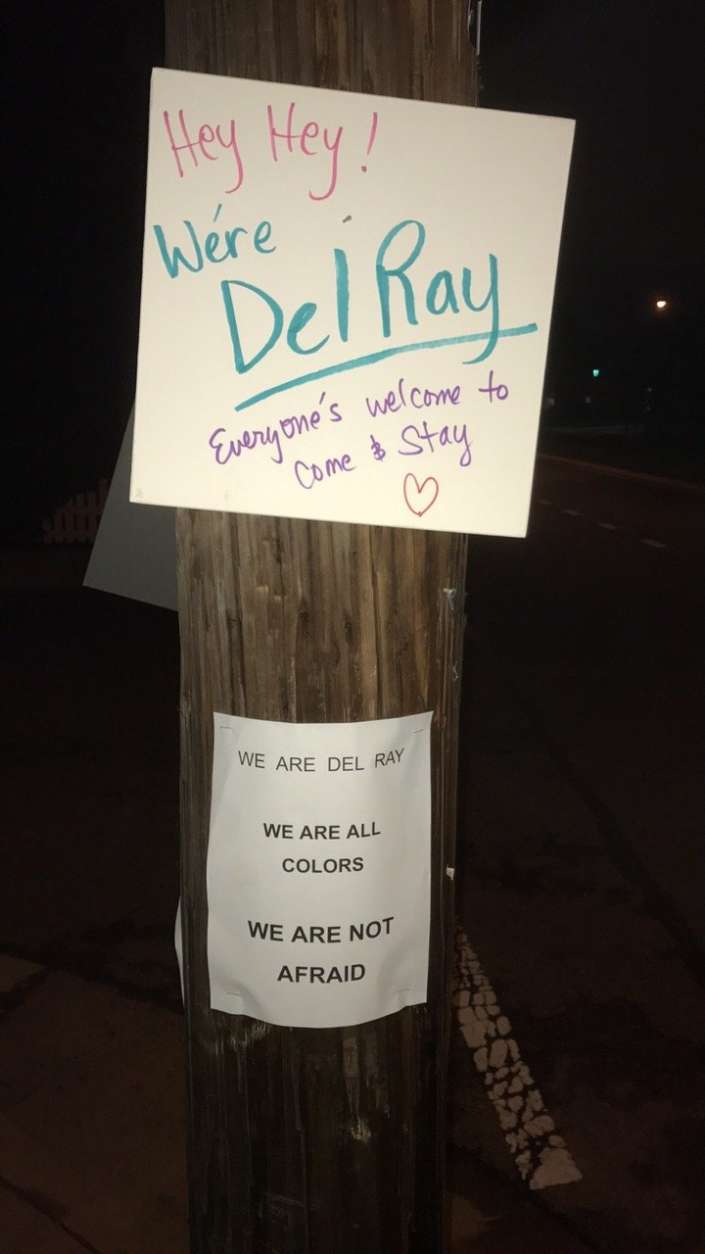 Hey Hey!
We're
Del Ray
Everyone's welcome to
come & Stay
WE ARE DEL RAY
WE ARE ALL
COLORS
WE ARE NOT
AFRAID